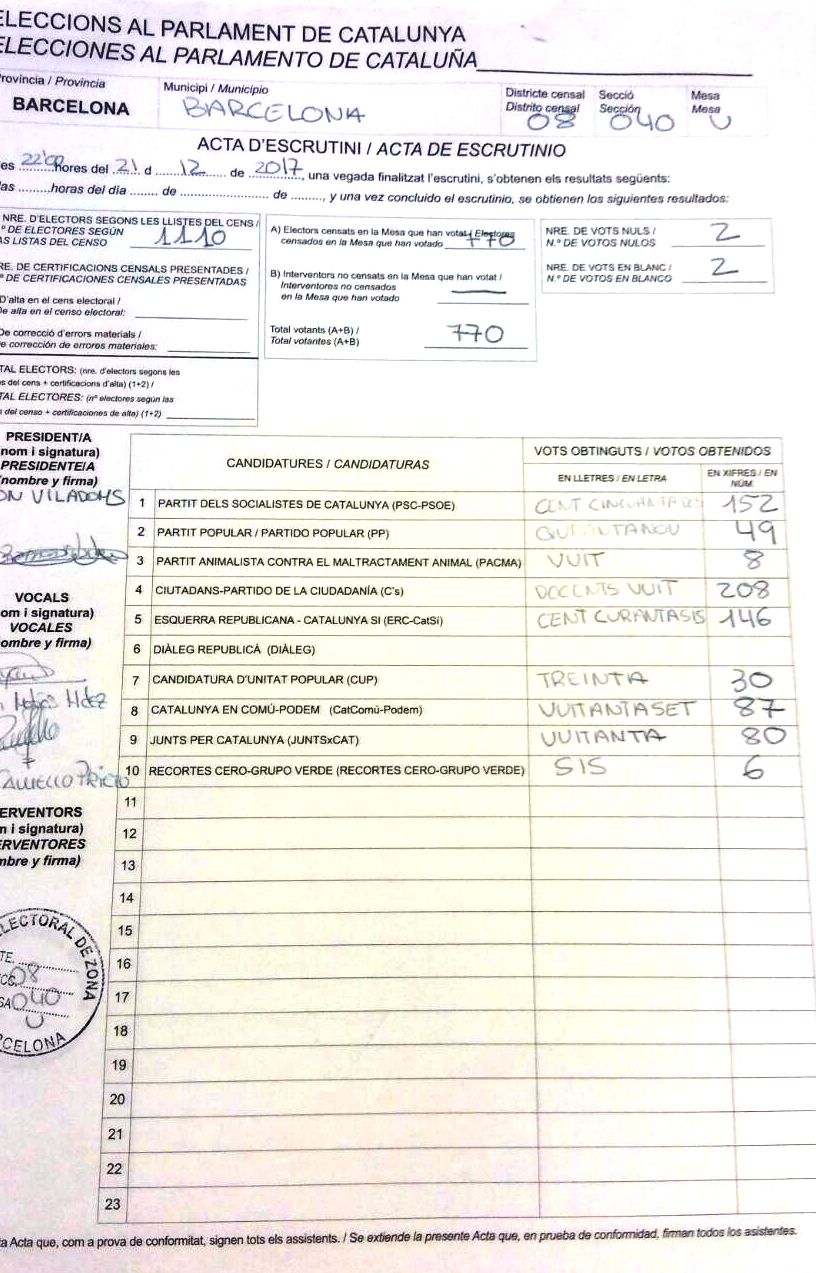 ELECCIONS AL PARLAMENT DE CATALUNYA
ELECCIONES AL PARLAMENTO DE CATALUÑA
Provincia / Provincia
BARCELONA
Municipi / Municipio
BARCELONA
Districte censal
Distrito censal
08
Secció
Sección
040
Mesa
Mesa
U
ACTA D'ESCRUTINI / ACTA DE ESCRUTINIO
es 22'00 hores del 21 d 12 de 2017, una vegada finalitzat l'escrutini, s'obtenen els resultats següents:
las ......... horas del día ........ de ........................... de .........., y una vez concluido el escrutinio, se obtienen los siguientes resultados:
NRE. D'ELECTORS SEGONS LES LLISTES DEL CENS /
º DE ELECTORES SEGÚN
AS LISTAS DEL CENSO
1110
RE. DE CERTIFICACIONS CENSALS PRESENTADES /
º DE CERTIFICACIONES CENSALES PRESENTADAS
D'alta en el cens electoral /
De alta en el censo electoral:
De correcció d'errors materials /
e corrección de errores materiales:
TAL ELECTORS: (nre. d'electors segons les
s del cens + certificacions d'alta) (1+2) /
TAL ELECTORES: (nº electores según las
s del censo + certificaciones de alta) (1+2)
A) Electors censats en la Mesa que han votat / Electores
censados en la Mesa que han votado 770
B) Interventors no censats en la Mesa que han votat /
Interventores no censados
en la Mesa que han votado
Total votants (A+B) /
Total votantes (A+B)
770
NRE. DE VOTS NULS /
N.º DE VOTOS NULOS
2
NRE. DE VOTS EN BLANC /
N.º DE VOTOS EN BLANCO
2
PRESIDENT/A
nom i signatura)
PRESIDENTE/A
(nombre y firma)
ON VILADOMS
VOCALS
om i signatura)
VOCALES
ombre y firma)
ERVENTORS
n i signatura)
ERVENTORES
mbre y firma)
LECTORAL DE ZONA
TE.
08
SA 040
U
CELONA
CANDIDATURES / CANDIDATURAS
VOTS OBTINGUTS / VOTOS OBTENIDOS
EN LLETRES / EN LETRA
EN XIFRES / EN NÚM.
1 PARTIT DELS SOCIALISTES DE CATALUNYA (PSC-PSOE) CENT CINQUANTA DOS 152
2 PARTIT POPULAR / PARTIDO POPULAR (PP) 49
3 PARTIT ANIMALISTA CONTRA EL MALTRACTAMENT ANIMAL (PACMA) VUIT 8
4 CIUTADANS-PARTIDO DE LA CIUDADANÍA (C's) DOCENTS VUIT 208
5 ESQUERRA REPUBLICANA - CATALUNYA SI (ERC-CatSí) CENT CURANTASIS 146
6 DIÀLEG REPUBLICÀ (DIÀLEG)
7 CANDIDATURA D'UNITAT POPULAR (CUP) TREINTA 30
8 CATALUNYA EN COMÚ-PODEM (CatComú-Podem) VUITANTASET 87
9 JUNTS PER CATALUNYA (JUNTSxCAT) VUITANTA 80
10 RECORTES CERO-GRUPO VERDE (RECORTES CERO-GRUPO VERDE) SIS 6
11
12
13
14
15
16
17
18
19
20
21
22
23
a Acta que, com a prova de conformitat, signen tots els assistents. / Se extiende la presente Acta que, en prueba de conformidad, firman todos los asistentes.